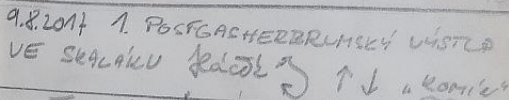 9.8.2017 1. POSTGASHERBRUMSKÝ VÝSTUP
VE SKALÁKU ↑↓ „KOMÍN“